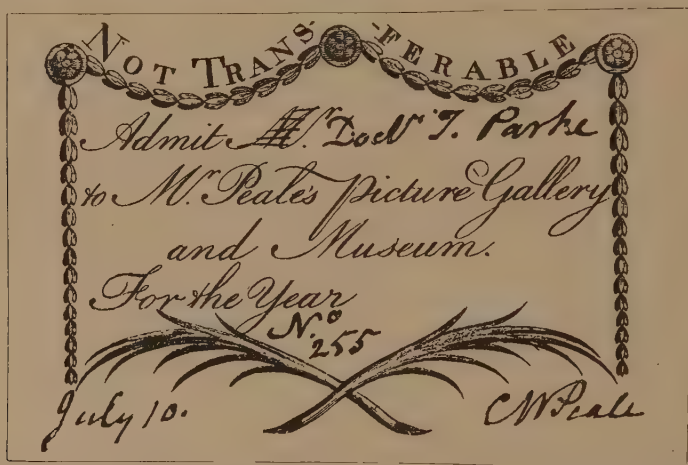 NOT TRANS-FERABLE
Admit Mr. Doctr T. Parke
to Mr. Peale's Picture Gallery
and Museum.
For the Year
No.
255
July 10. CWPeale